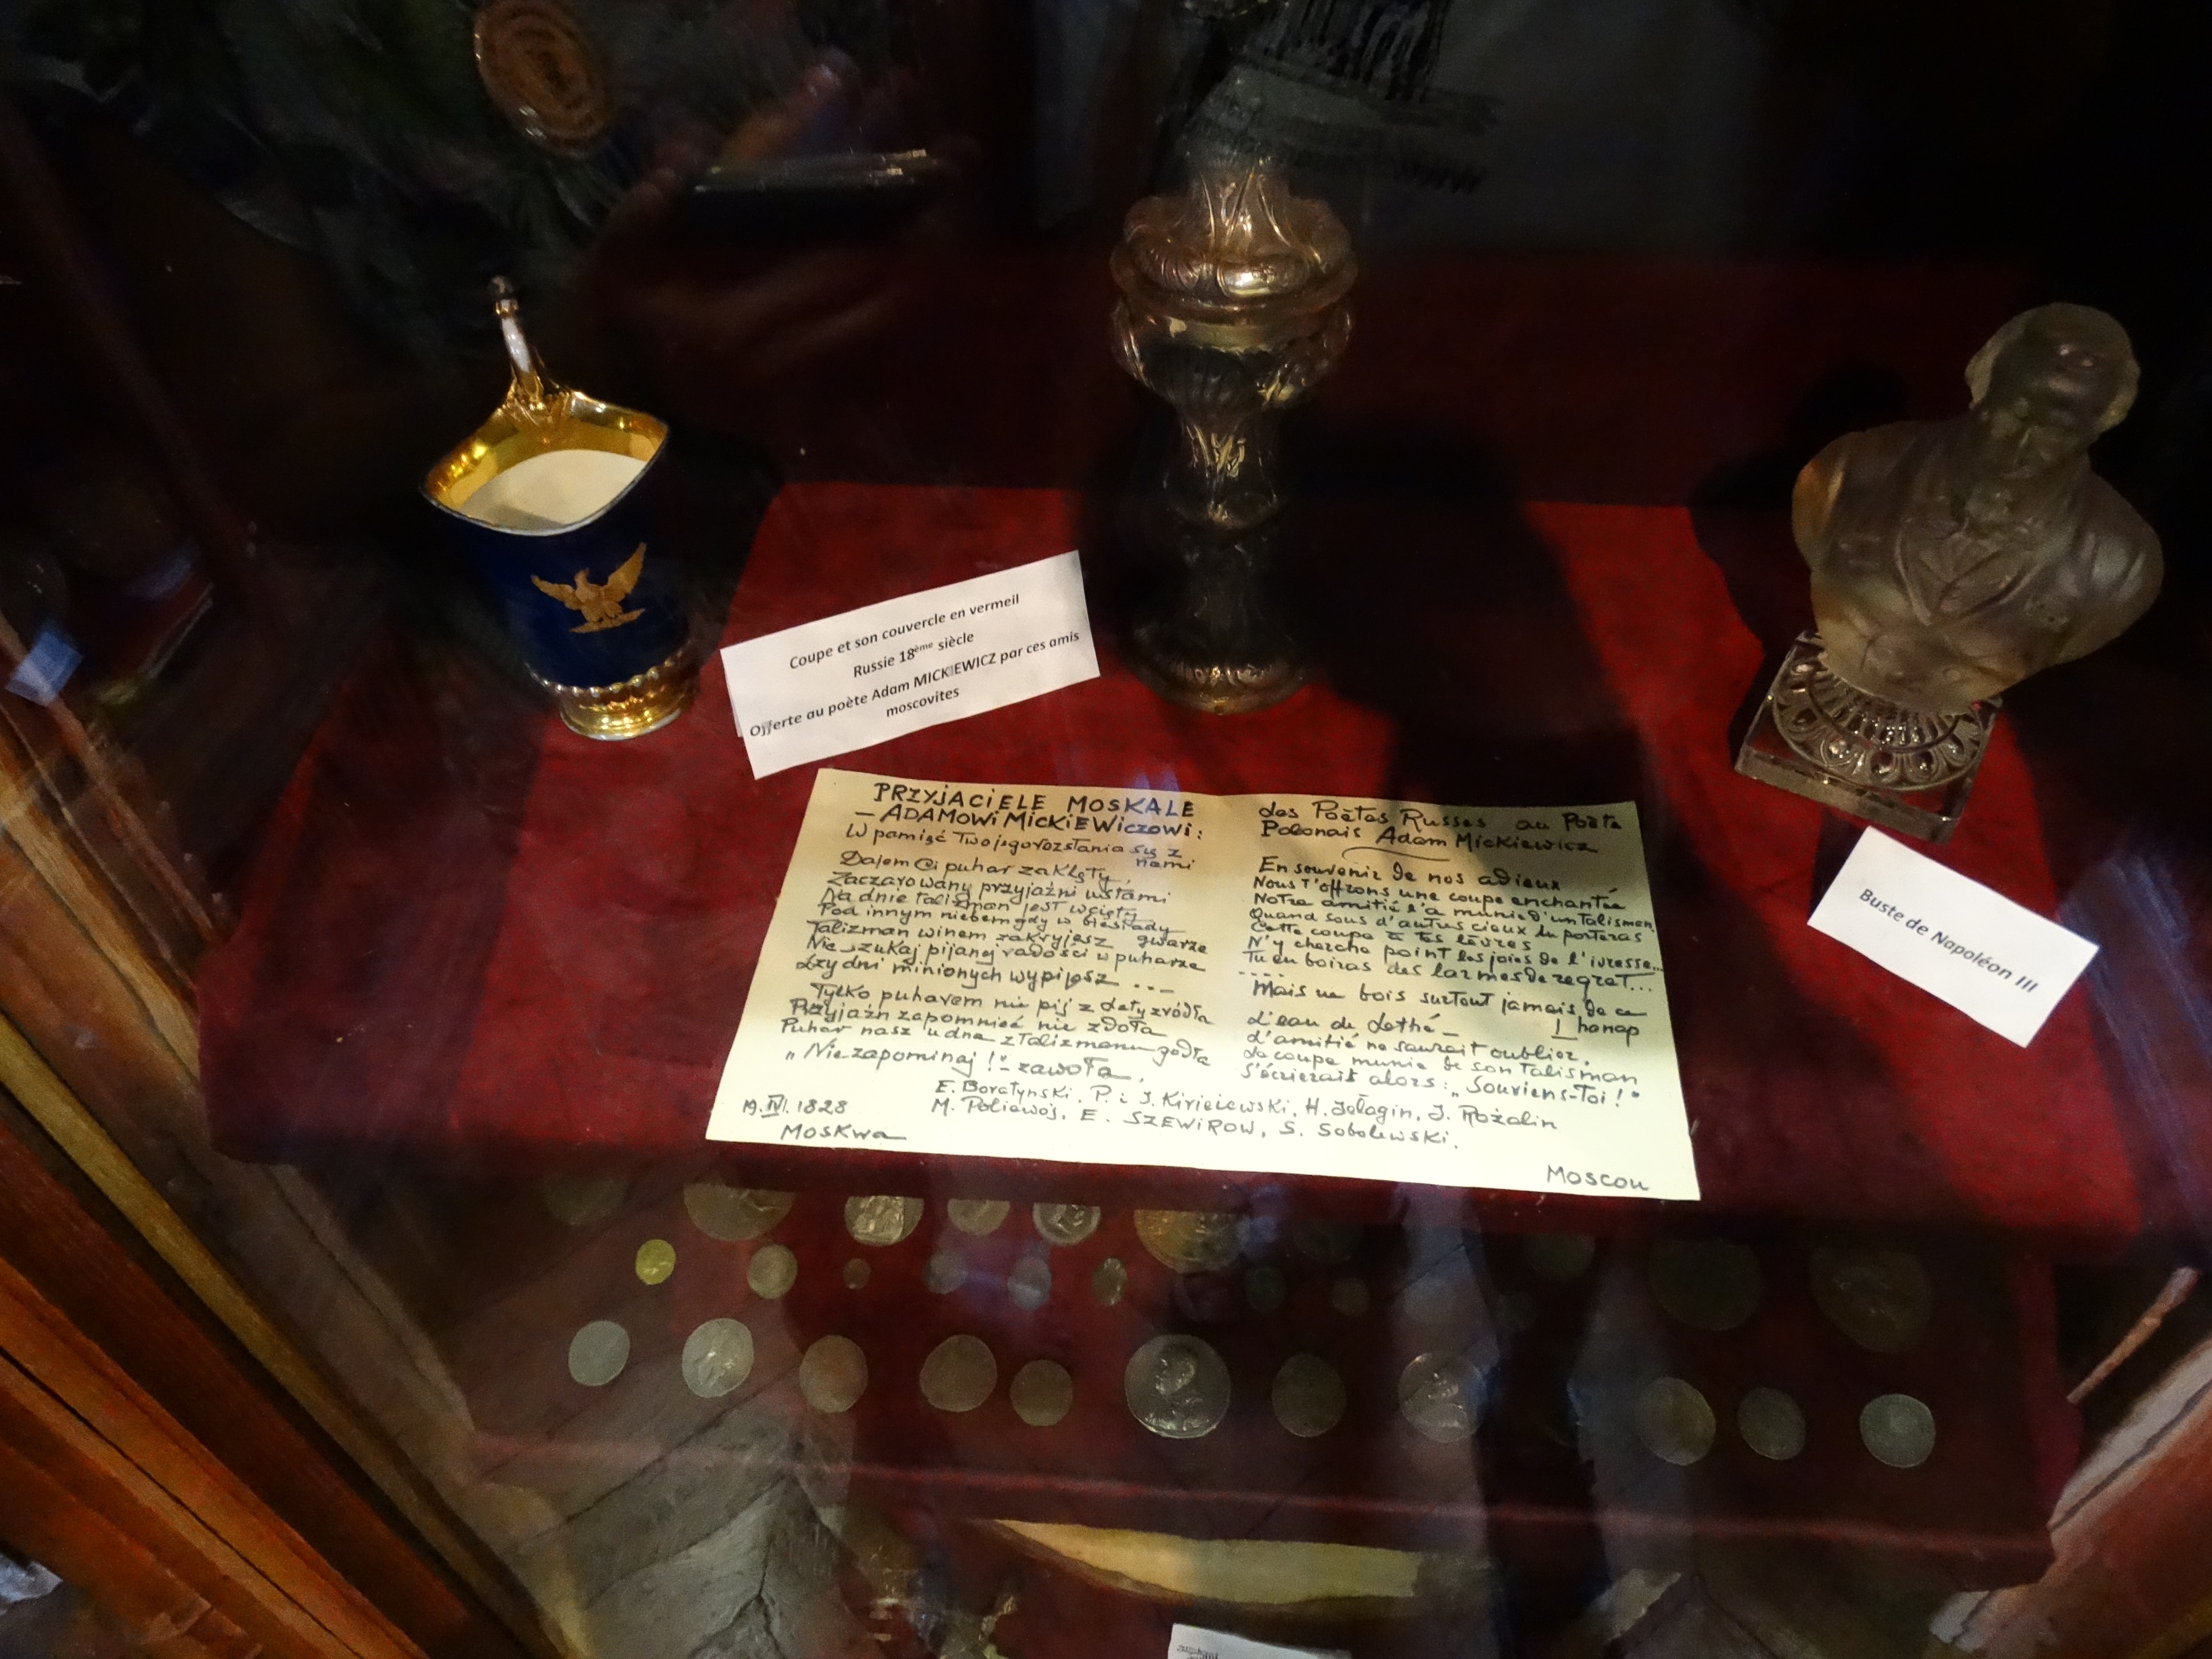 Coupe et son couvercle en vermeil
Russie 18ème siècle
Offerte au poète Adam MICKIEWICZ par ces amis
moscovites
PRZYJACIELE MOSKALE
– ADAMOWI MICKIEWICZOWI:
W pamięć Twojego rozstania się z
nami
Dajem Ci puhar zaklęty,
Zaczarowany przyjaźni ustami
Na dnie talizman jest wcięty
Pod innym niebem gdy w biesiady
Talizman winem zakryjesz gwarze
Nie szukaj pijanej radości w puharze
Łzy dni minionych wypijesz ...–
Tylko puharem nie pij z Lety źródła
Przyjaźń zapomnieć nie zdoła
Puhar nasz u dna z talizmanu godła
„Nie zapominaj!"– zawoła.
des Poètes Russes au Poète
Polonais Adam Mickiewicz
En souvenir de nos adieux
Nous t'offrons une coupe enchantée
Notre amitié l'a munie d'un talisman
Quand sous d'autres cieux tu porteras
Cette coupe à tes lèvres
N'y cherche point les joies de l'ivresse...
Tu en boiras des larmes de regret...
....
Mais ne bois surtout jamais de ce
L'eau de Lethé – hanap
L'amitié ne saurait oublier.
La coupe munie de son talisman
S'écrierait alors: „Souviens-toi!"
E. Boratynski, P. i J. Kiriejewski, H. Jełagin, J. Rożalin
M. Poliewoj, E. SZEWIROW, S. Sobolewski.
19.IV.1828
Moskwa
Moscou
Buste de Napoléon III